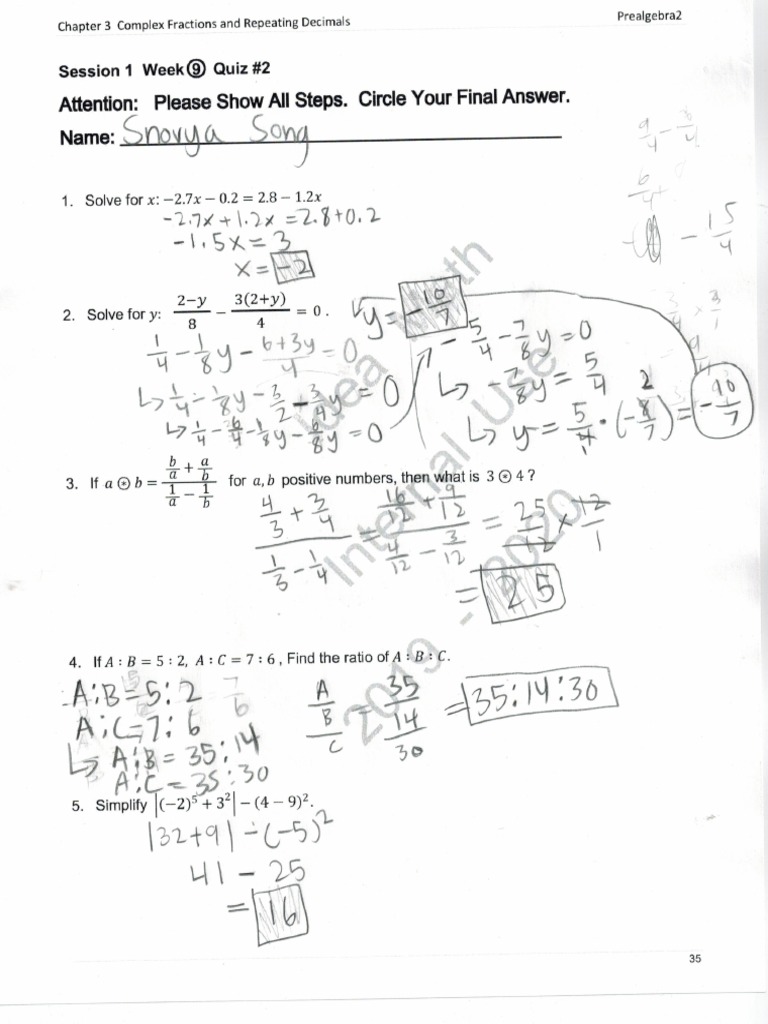 Chapter 3 Complex Fractions and Repeating Decimals
Prealgebra2
Session 1 Week ⑨ Quiz #2
Attention: Please Show All Steps. Circle Your Final Answer.
Name: Snovya Song
9/4 - 8/4
6/4
- 15/4
1. Solve for x: −2.7x − 0.2 = 2.8 − 1.2x
-2.7x + 1.2x = 2.8 + 0.2
-1.5x = 3
x = -2
2. Solve for y: (2−y)/8 − 3(2+y)/4 = 0.
y = -10/7
1/4 - 1/8y - (6+3y)/4 = 0
↳ 1/4 - 1/8y - 3/2 - 3/4y = 0
↳ 1/4 - 6/4 - 1/8y - 6/8y = 0
- 5/4 - 7/8y = 0
↳ -7/8y = 5/4
↳ y = 5/4 • (-8/7) = -10/7
3. If a ⊙ b = (b/a + a/b)/(1/a − 1/b) for a, b positive numbers, then what is 3 ⊙ 4 ?
(4/3 + 3/4)/(1/3 - 1/4) = (16/12 + 9/12)/(4/12 - 3/12) = 25/12 × 12/1
= 25
4. If A : B = 5 : 2, A : C = 7 : 6 , Find the ratio of A : B : C.
A:B = 5:2
A:C = 7:6
↳ A:B = 35:14
A:C = 35:30
A/B/C = 35/14/30 = 35:14:30
5. Simplify |(−2)⁵ + 3²| − (4 − 9)².
|32+9| - (-5)²
41 - 25
= 16
Idea Math
Internal Use
2019 - 2020
35